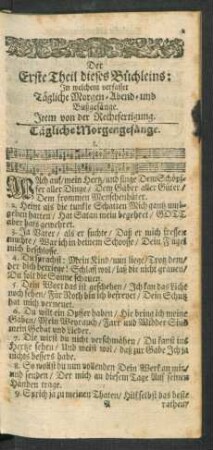 Der
Erste Theil dieses Büchleins:
In welchem verfasset
Tägliche Morgen-Abend- und
Bußgesänge.
Item von der Rechtfertigung.
Tägliche Morgengesänge.
I.
WAch auf mein Hertz, und singe Dem Schöpf-
fer aller Dinge/ Dem Geber aller Güter/
Dem frommen Menschenhüter.
2. Heint als die dunkle Schatten Mich gantz um-
geben hatten/ Hat Satan mein begehret/ GOTT
aber hats gewehret.
3. Ja Vater/ als er suchte/ Daß er mich fressen
mochte/ War ich in deinem Schoosse/ Dein Flügel
mich beschlosse.
4. Du sprachst: Mein Kind/ nun liege/ Trotz dem/
der dich betriege/ Schlaf wol/ laß dir nicht grauen/
Du solt die Sonne schauen.
5. Dein Wort das ist geschehen/ Ich kan das Licht
noch sehen/ Für Noth bin ich befreyet/ Dein Schutz
hat mich verneuet.
6. Du wilt ein Opffer haben/ Hie bring ich meine
Gaben/ Mein Weyrauch/ Farr und Widder Sind
mein Gebät und Lieder.
7. Die wirst du nicht verschmähen/ Du kanst ins
Hertze sehen/ Und weist wol/ daß zur Gabe Ich ja
nichts bessers habe.
8. So wollst du nun vollenden Dein Werk an mir/
und senden/ Der mich an diesem Tage Auf seinen
Händen trage.
9. Sprich ja zu meinen Thaten/ Hilf selbst das beste
A rathen/